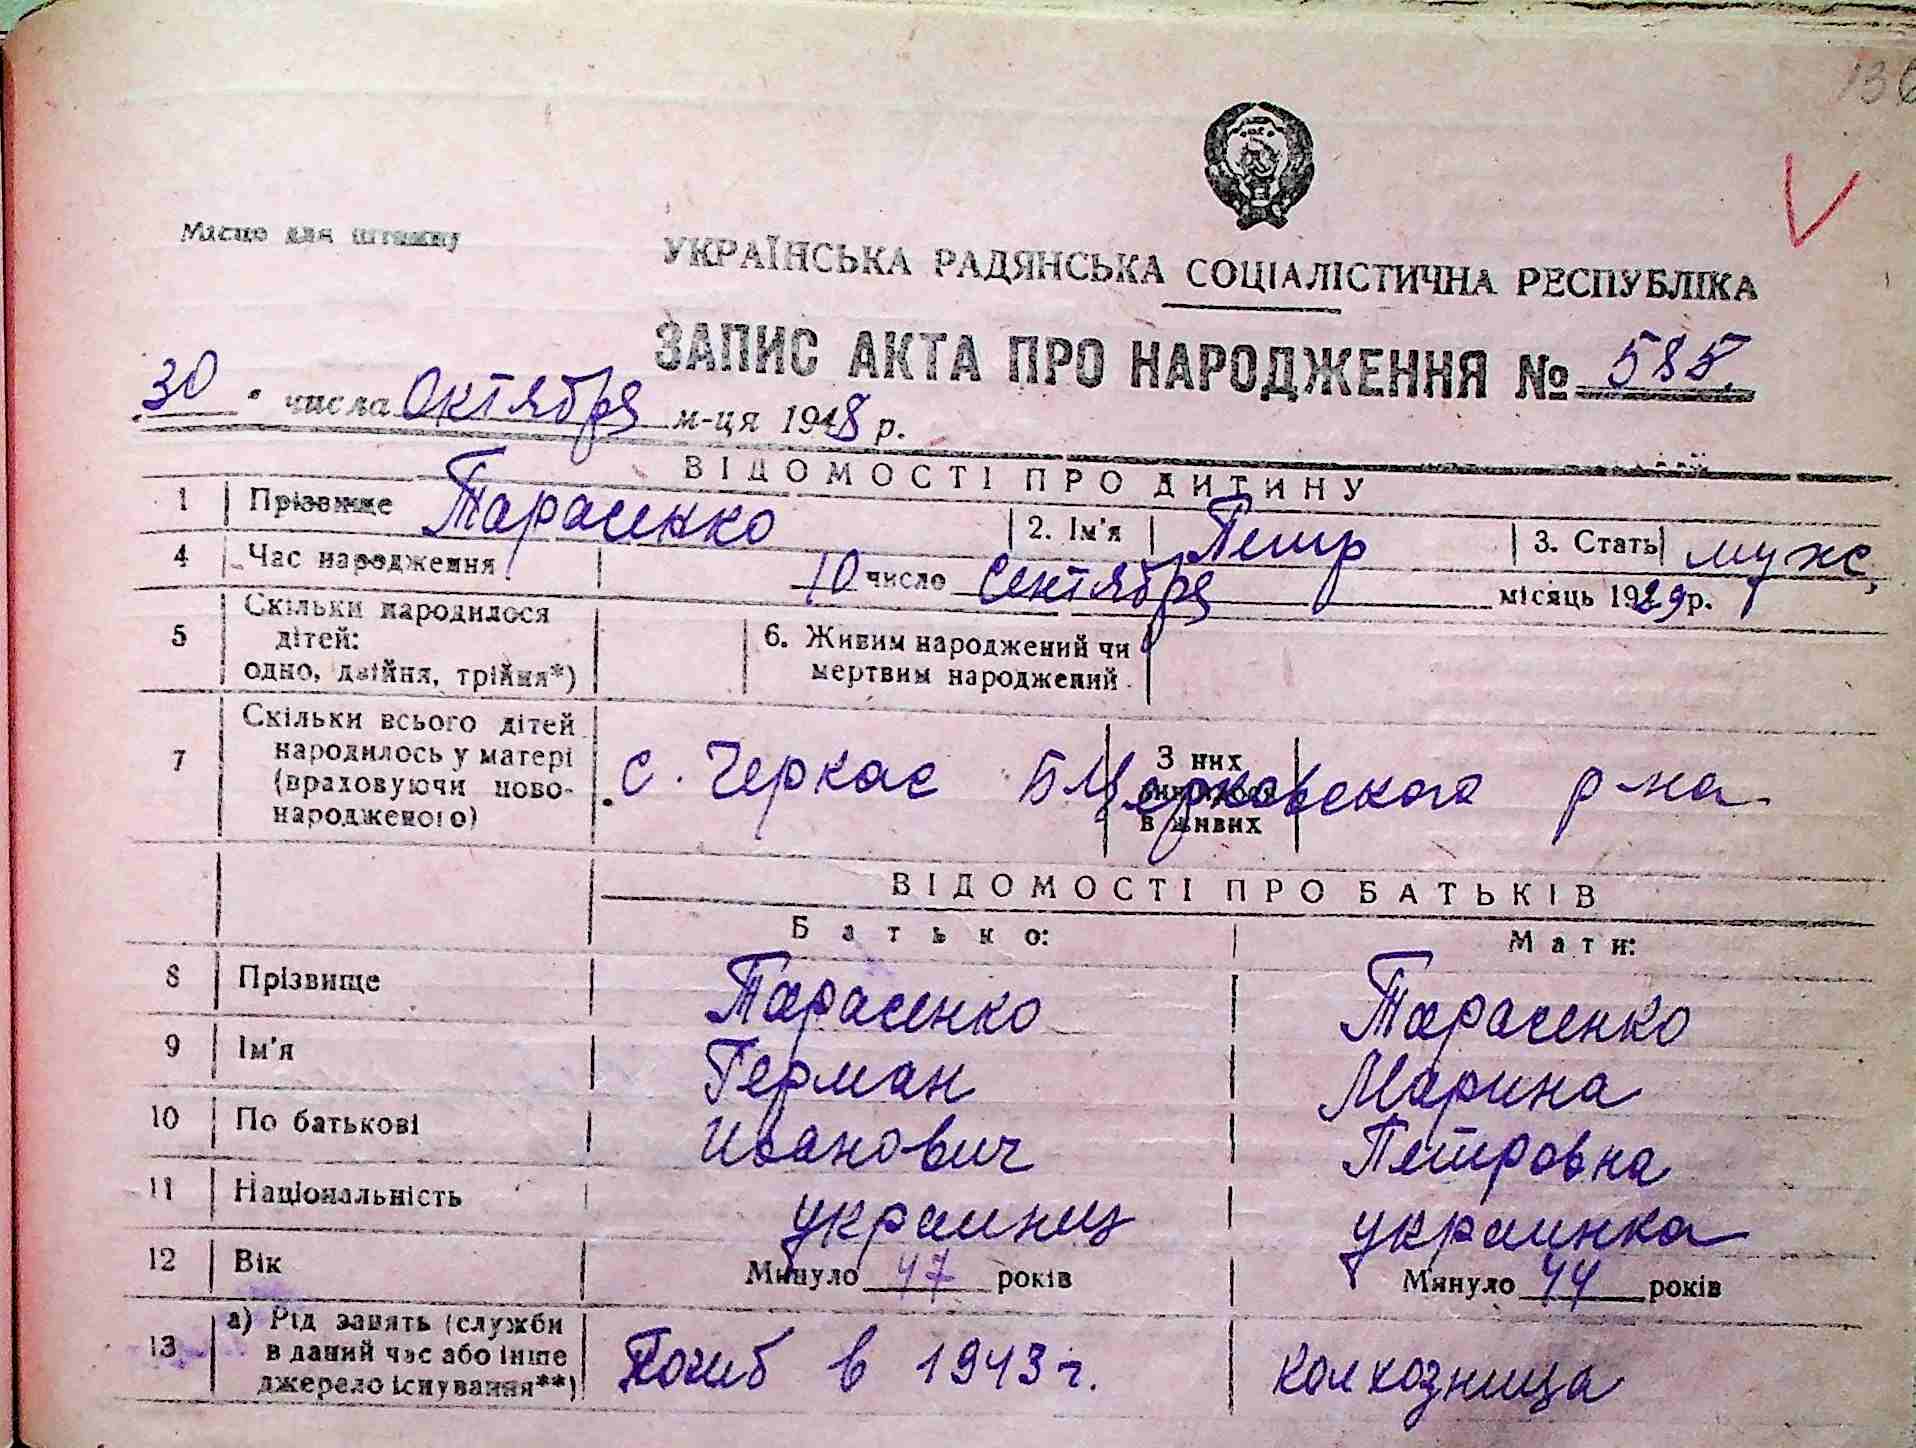 136
Місце для штампу
УКРАЇНСЬКА РАДЯНСЬКА СОЦІАЛІСТИЧНА РЕСПУБЛІКА
ЗАПИС АКТА ПРО НАРОДЖЕННЯ № 585.
30 числа Октября м-ця 1948 р.
ВІДОМОСТІ ПРО ДИТИНУ
1 Прізвище Тарасенко 2. Ім'я Петр 3. Стать муж,
4 Час народження 10 число Сентября місяць 1929 р.
5 Скільки народилося дітей: одно, двійня, трійня*) 6. Живим народжений чи мертвим народжений
7 Скільки всього дітей народилось у матері (враховуючи новонародженого) З них в живих
с. Черкас БЦерковского р-на
ВІДОМОСТІ ПРО БАТЬКІВ
Батько: Мати:
8 Прізвище Тарасенко Тарасенко
9 Ім'я Герман Марина
10 По батькові Иванович Петровна
11 Національність украинец украинка
12 Вік Минуло 47 років Минуло 44 років
13 а) Рід занять (служби в даний час або інше джерело існування**) Погиб в 1943 г. колхозница